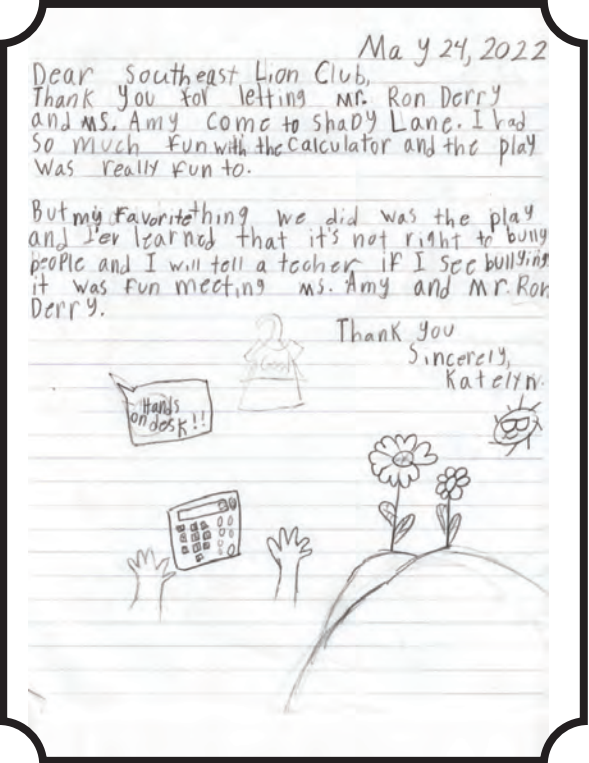 May 24, 2022
Dear Southeast Lion Club,
Thank you for letting Mr. Ron Derry
and Ms. Amy Come to Shady Lane. I had
So much fun with the Calculator and the play
Was really fun to.
But my favorite thing we did was the play
and I'ev learned that it's not right to bully
people and I will tell a techer if I see bullying
it was fun meeting Ms. Amy and Mr. Ron
Derry.
Thank you
Sincerely,
Katelyn.
Hands
on desk!!